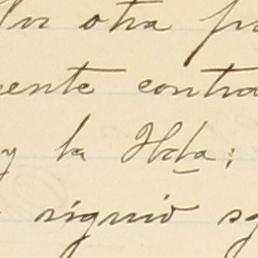 Por otra
ente contra
y la Hda;
siguió